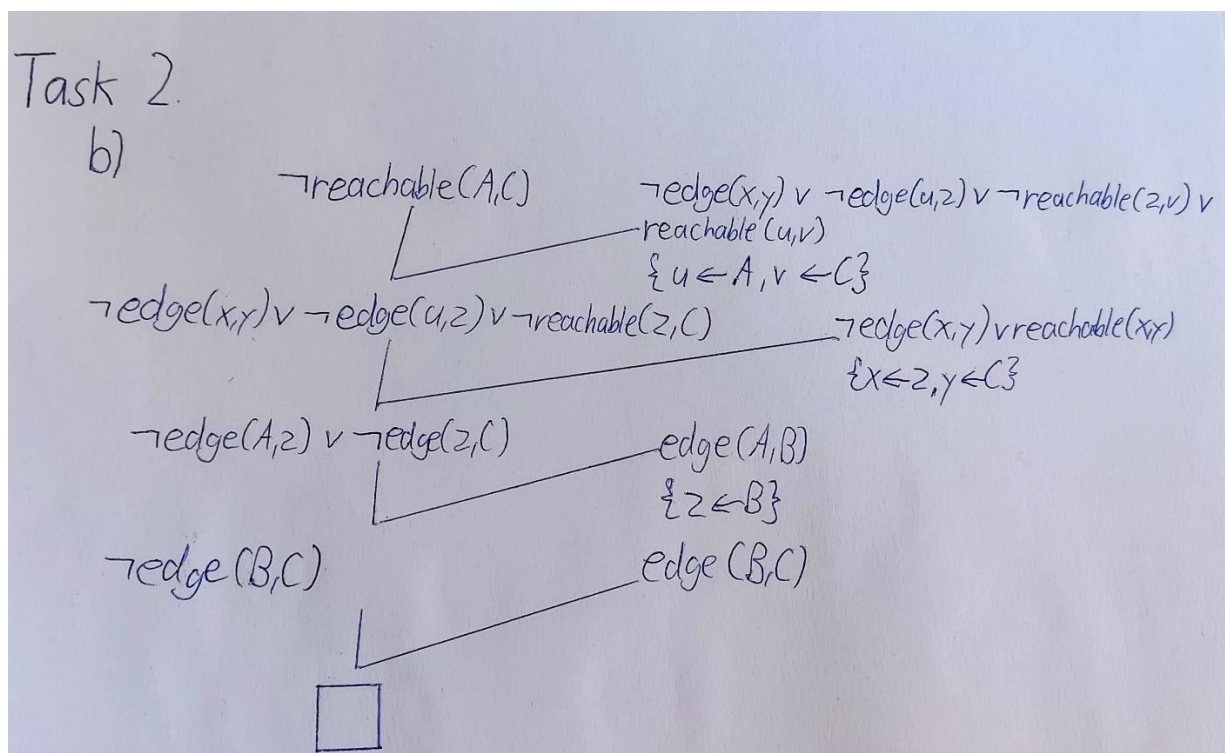 Task 2.
b)
¬reachable(A,C)
¬edge(x,y) ∨ ¬edge(u,z) ∨ ¬reachable(z,v) ∨
reachable(u,v)
{u←A, v←C}
¬edge(x,y) ∨ ¬edge(u,z) ∨ ¬reachable(z,C)
¬edge(x,y) ∨ reachable(x,y)
{x←z, y←C}
¬edge(A,z) ∨ ¬edge(z,C)
edge(A,B)
{z←B}
¬edge(B,C)
edge(B,C)